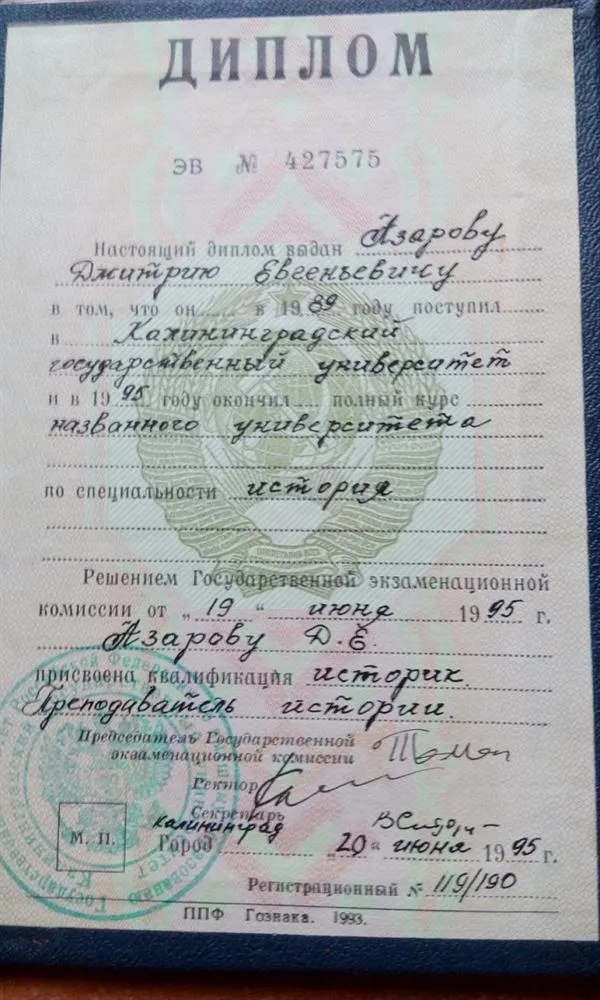 ДИПЛОМ
ЭВ № 427575
Настоящий диплом выдан Азарову
Дмитрию Евгеньевичу
в том, что он в 1989 году поступил
в Калининградский
государственный университет
и в 1995 году окончил полный курс
названного университета
по специальности история
Решением Государственной экзаменационной
комиссии от „19“ июня 1995 г.
Азарову Д.Е.
присвоена квалификация историк.
Преподаватель истории.
Председатель Государственной
экзаменационной комиссии
Ректор
Секретарь
М. П.
Город Калининград „20“ июня 1995 г.
Регистрационный № 119/190
ППФ Гознака. 1993.